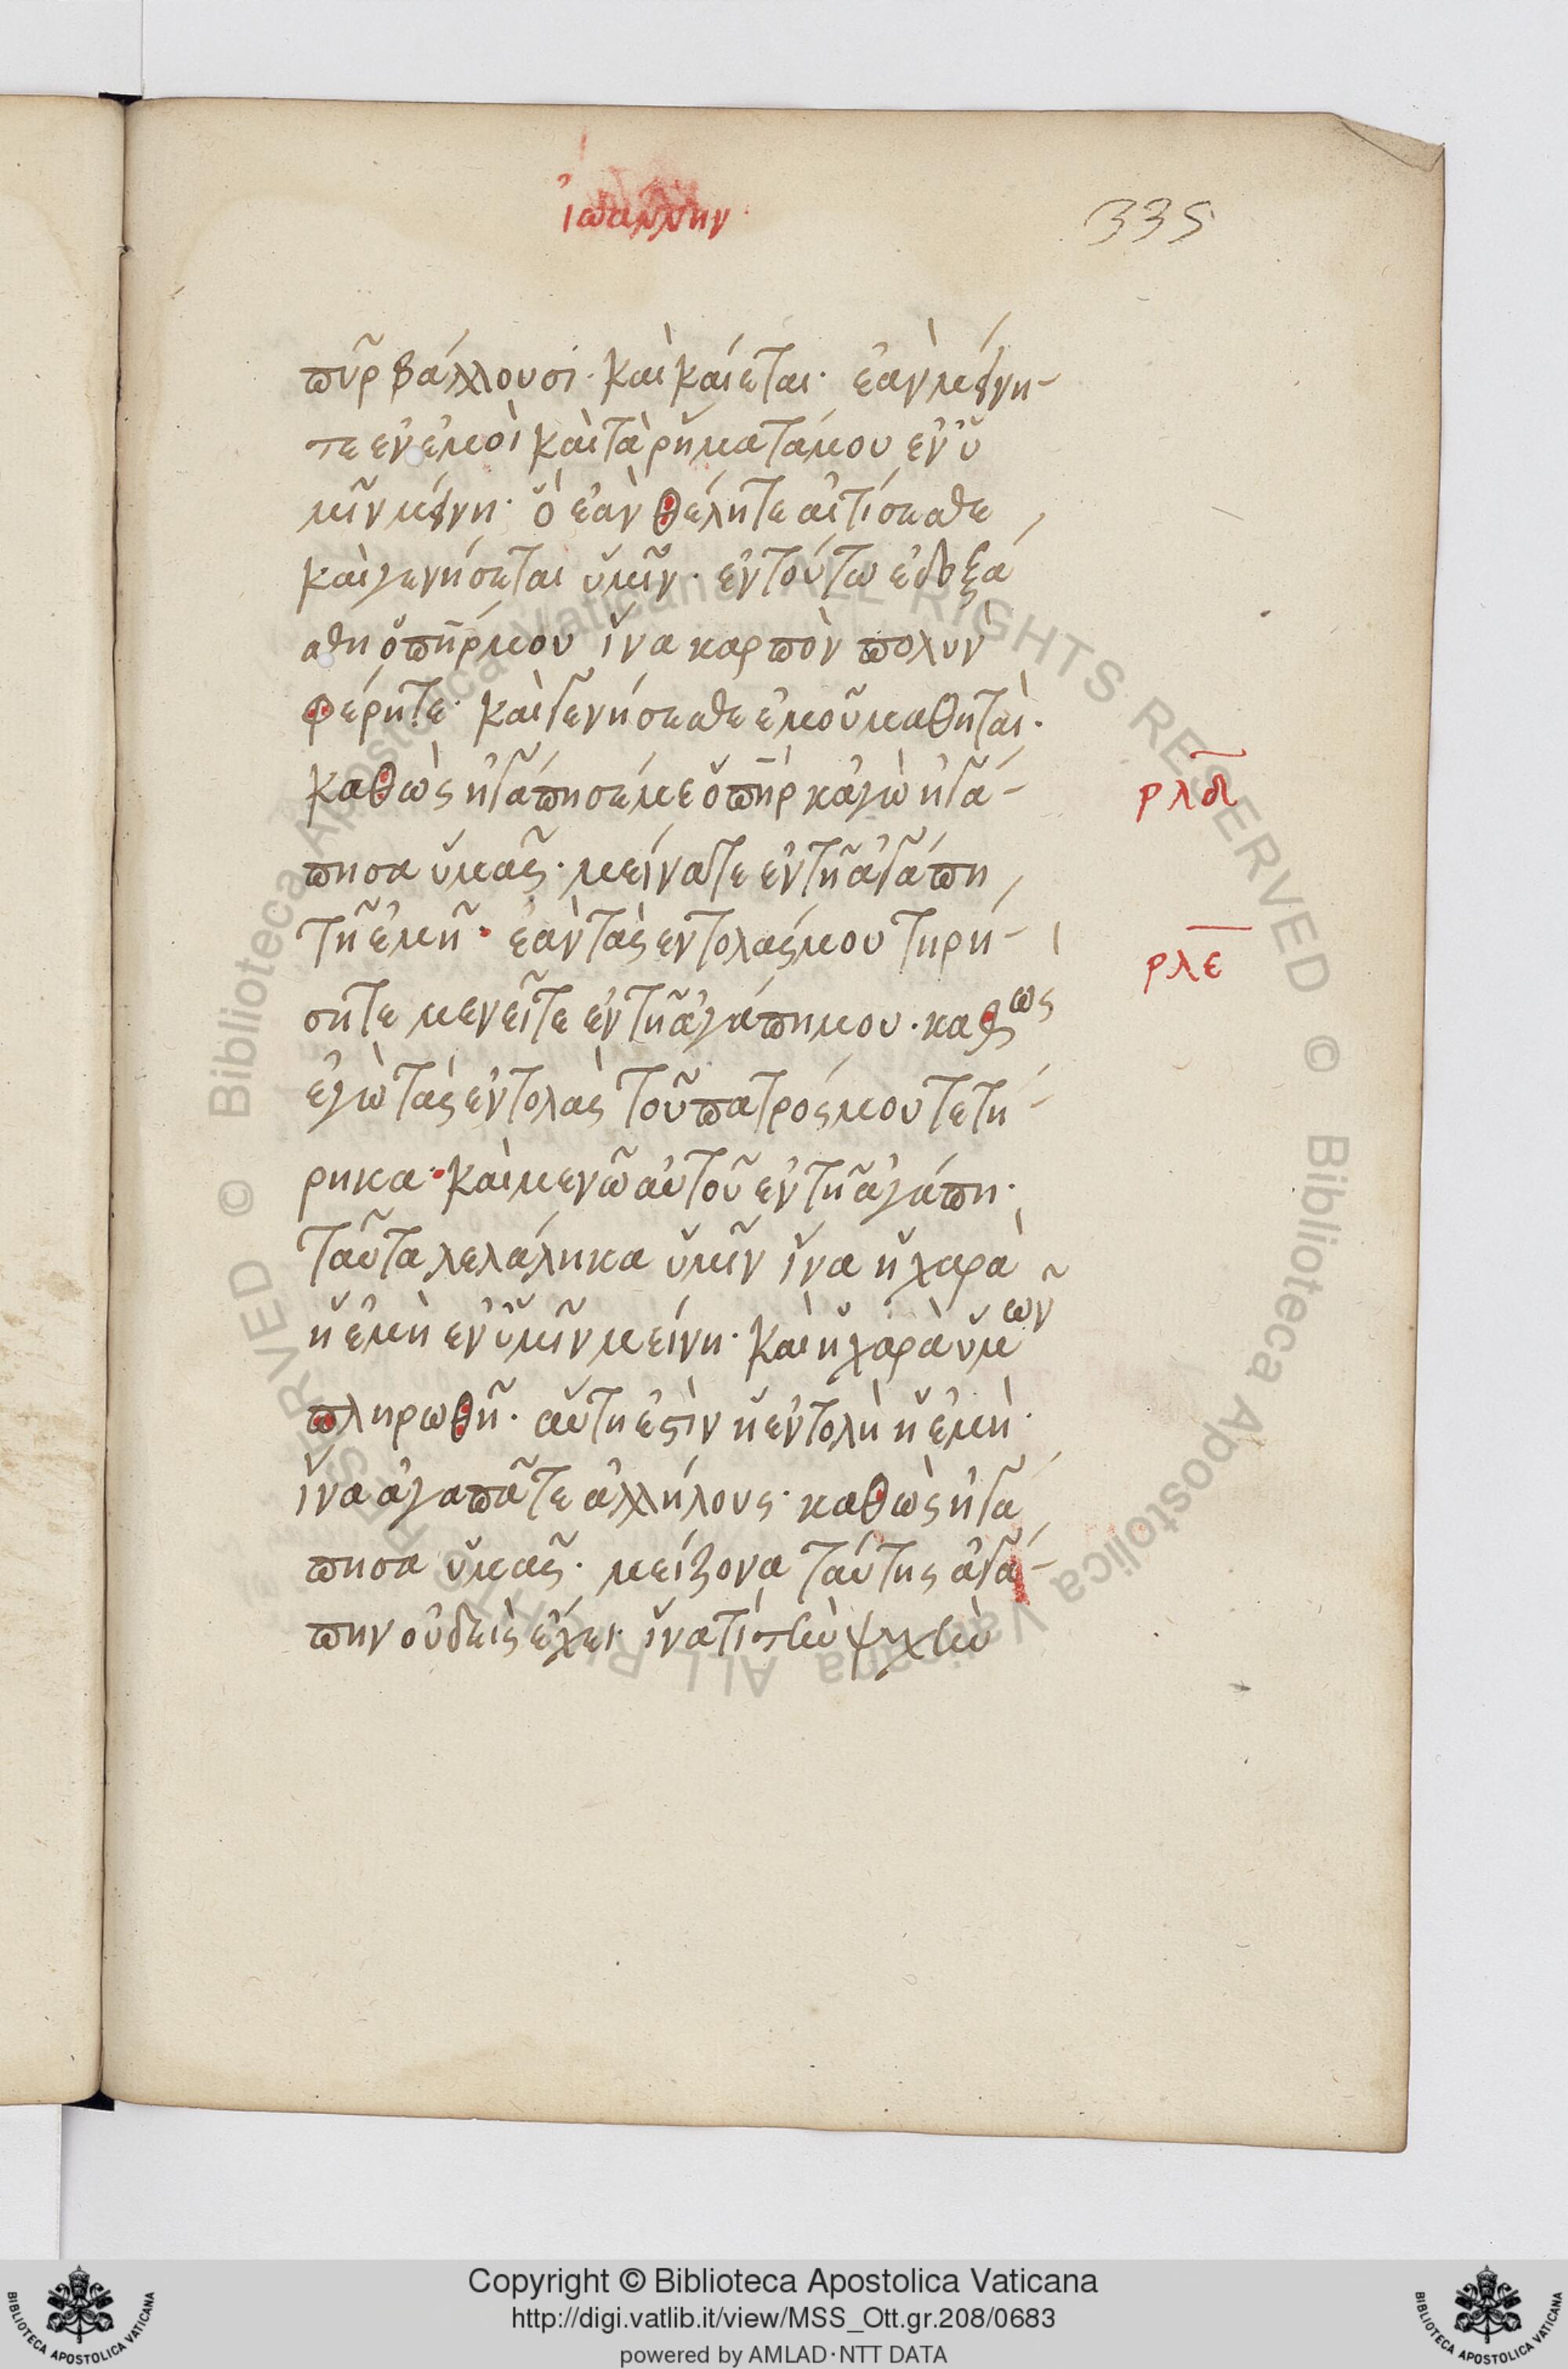 ἰωάννην
335
πῦρ βάλλουσι· καὶ καίεται· ἐὰν μείνη-
τε ἐν ἐμοὶ καὶ τὰ ῥήματά μου ἐν ὑ
μῖν μείνη· ὃ ἐὰν θέλητε αἰτίσεσθε
καὶ γενήσεται ὑμῖν· ἐν τούτω ἐδοξά
σθη ὁ πηρ μου ἵνα καρπὸν πολὺν
φέρητε· καὶ γενήσεσθε ἐμοῦ μαθηταὶ·
καθὼς ἠγάπησέ με ὁ πὴρ κἀγὼ ἠγά-
ρλδ
πησα ὑμᾶς· μείνατε ἐν τῆ ἀγάπη
τῆ ἐμῆ· ἐὰν τὰς ἐντολάς μου τηρή-
ρλε
σητε μενεῖτε ἐν τῆ ἀγάπη μου· καθως
ἐγὼ τὰς ἐντολὰς τοῦ πατρός μου τετή-
ρηκα· καὶ μενῶ αὐτοῦ ἐν τῆ ἀγάπη·
ταῦτα λελάληκα ὑμῖν ἵνα ἡ χαρὰ
ἡ ἐμὴ ἐν ὑμῖν μείνη· καὶ ἡ χαρὰ ὑμῶν
πληρωθῆ· αὕτη ἐστὶν ἡ ἐντολὴ ἡ ἐμὴ·
ἵνα ἀγαπᾶτε ἀλλήλους· καθὼς ἠγά
πησα ὑμᾶς· μείζονα ταύτης ἀγά-
πην οὐδεὶς ἔχει· ἵνα τὶς τὴν ψυχὴν
© Biblioteca Apostolica Vaticana ALL RIGHTS RESERVED © Biblioteca Apostolica Vaticana ALL RIGHTS RESERVED
Copyright © Biblioteca Apostolica Vaticana
http://digi.vatlib.it/view/MSS_Ott.gr.208/0683
powered by AMLAD·NTT DATA
BIBLIOTECA APOSTOLICA VATICANA
BIBLIOTECA APOSTOLICA VATICANA